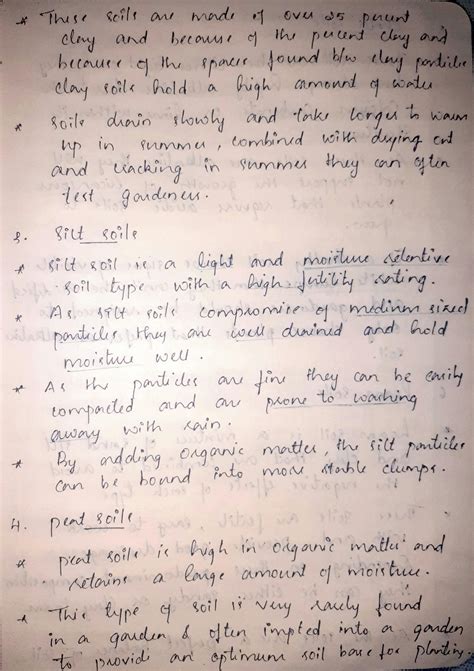 * These soils are made of over 25 percent
clay and because of the percent clay and
because of the spaces found b/w clay particles
clay soils hold a high amount of water
* Soils drain slowly and take longer to warm
up in summer, combined with drying out
and cracking in summer they can often
test gardeners.
3. Silt soils
* silt soil is a light and moisture retentive
soil type with a high fertility rating.
* As silt soils compromise of medium sized
particles they are well drained and hold
moisture well.
* As the particles are fine they can be easily
compacted and are prone to washing
away with rain.
* By adding organic matter, the silt particles
can be bound into more stable clumps.
4. peat soils
* peat soils is high in organic matter and
retains a large amount of moisture.
* This type of soil is very rarely found
in a garden & often impted into a garden
to provide an optimum soil base for planting.